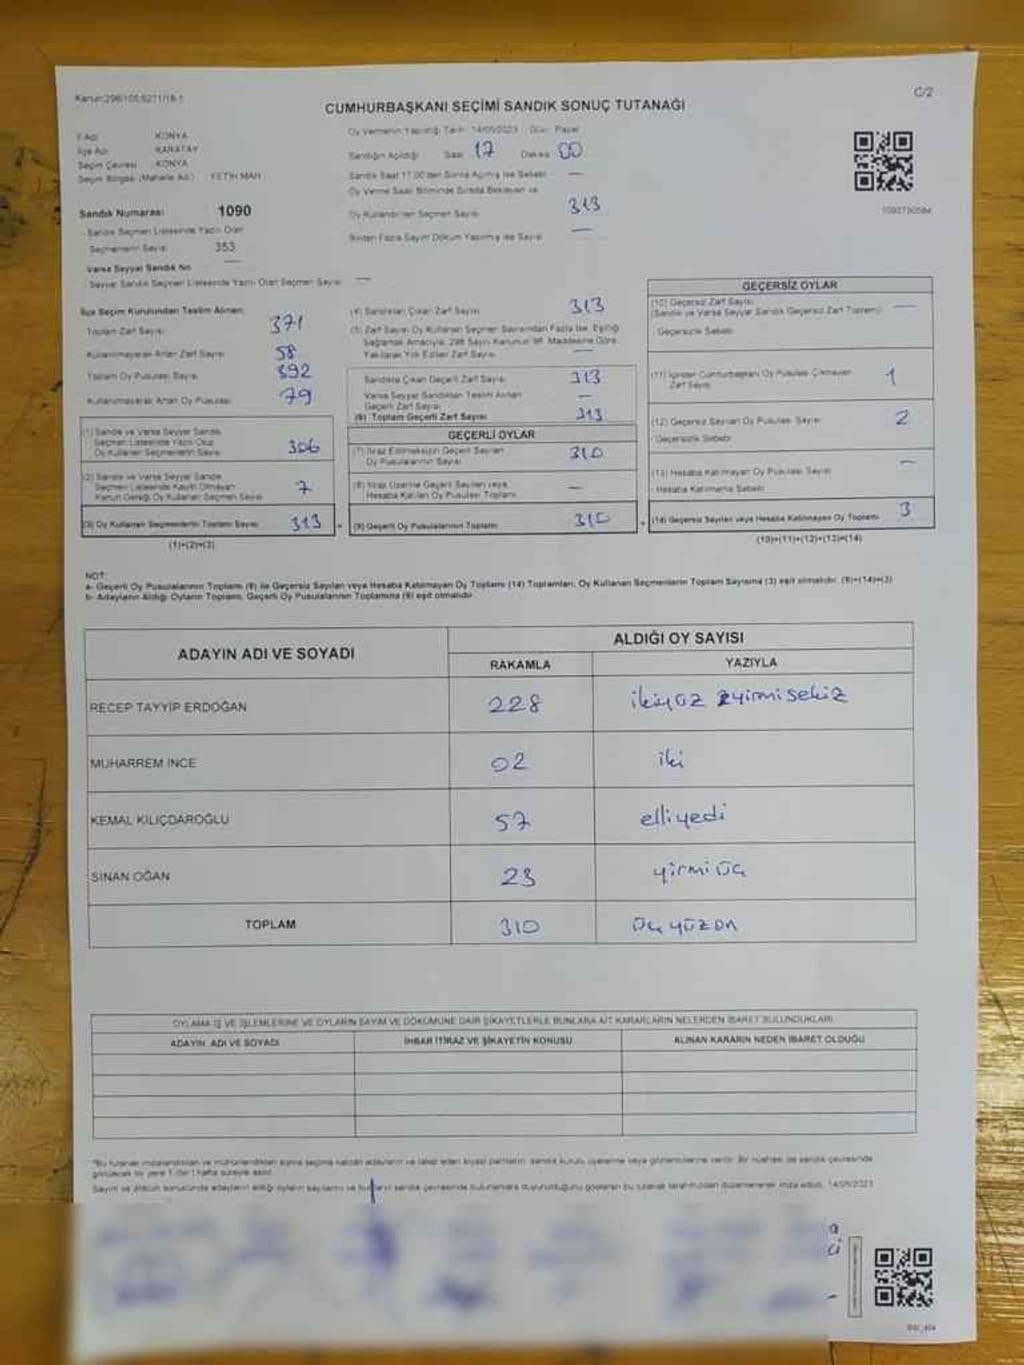 Kanun:298/105,6271/18-1
C/2
CUMHURBAŞKANI SEÇİMİ SANDIK SONUÇ TUTANAĞI
İl Adı: KONYA
İlçe Adı: KARATAY
Seçim Çevresi: KONYA
Seçim Bölgesi (Mahalle Adı): FETİH MAH
Oy Vermenin Yapıldığı Tarih: 14/05/2023 Gün: Pazar
Sandığın Açıldığı Saat: 17 Dakika: 00
Sandık Saat 17.00'den Sonra Açılmış İse Sebebi: —
Oy Verme Saati Bitiminde Sırada Bekleyen ve
Oy Kullandırılan Seçmen Sayısı 313
Birden Fazla Sayım Döküm Yapılmış İse Sayısı —
Sandık Numarası: 1090
- Sandık Seçmen Listesinde Yazılı Olan
Seçmenlerin Sayısı: 353
Varsa Seyyar Sandık No: —
- Seyyar Sandık Seçmen Listesinde Yazılı Olan Seçmen Sayısı: —
İlçe Seçim Kurulundan Teslim Alınan;
Toplam Zarf Sayısı: 371
Kullanılmayarak Artan Zarf Sayısı: 58
Toplam Oy Pusulası Sayısı: 392
Kullanılmayarak Artan Oy Pusulası: 79
(1) Sandık ve Varsa Seyyar Sandık
Seçmen Listesinde Yazılı Olup
Oy Kullanan Seçmenlerin Sayısı 306
(2) Sandık ve Varsa Seyyar Sandık
Seçmen Listesinde Kayıtlı Olmayan
Kanun Gereği Oy Kullanan Seçmen Sayısı 7
(3) Oy Kullanan Seçmenlerin Toplam Sayısı 313
(1)+(2)=(3)
(4) Sandıktan Çıkan Zarf Sayısı: 313
(5) Zarf Sayısı Oy Kullanan Seçmen Sayısından Fazla İse, Eşitliği
Sağlamak Amacıyla, 298 Sayılı Kanunun 98. Maddesine Göre
Yakılarak Yok Edilen Zarf Sayısı: —
Sandıkta Çıkan Geçerli Zarf Sayısı: 313
Varsa Seyyar Sandıktan Teslim Alınan
Geçerli Zarf Sayısı: —
(6) Toplam Geçerli Zarf Sayısı: 313
GEÇERLİ OYLAR
(7) İtiraz Edilmeksizin Geçerli Sayılan
Oy Pusulalarının Sayısı 310
(8) İtiraz Üzerine Geçerli Sayılan veya
Hesaba Katılan Oy Pusulası Toplamı —
(9) Geçerli Oy Pusulalarının Toplamı 310
GEÇERSİZ OYLAR
(10) Geçersiz Zarf Sayısı
(Sandık ve Varsa Seyyar Sandık Geçersiz Zarf Toplamı): —
- Geçersizlik Sebebi:
(11) İçinden Cumhurbaşkanı Oy Pusulası Çıkmayan
Zarf Sayısı 1
(12) Geçersiz Sayılan Oy Pusulası Sayısı: 2
- Geçersizlik Sebebi:
(13) Hesaba Katılmayan Oy Pusulası Sayısı: —
- Hesaba Katılmama Sebebi:
(14) Geçersiz Sayılan veya Hesaba Katılmayan Oy Toplamı 3
(10)+(11)+(12)+(13)=(14)
NOT:
a- Geçerli Oy Pusulalarının Toplamı (9) ile Geçersiz Sayılan veya Hesaba Katılmayan Oy Toplamı (14) Toplamları, Oy Kullanan Seçmenlerin Toplam Sayısına (3) eşit olmalıdır. (9)+(14)=(3)
b- Adayların Aldığı Oyların Toplamı, Geçerli Oy Pusulalarının Toplamına (9) eşit olmalıdır.
ADAYIN ADI VE SOYADI ALDIĞI OY SAYISI
RAKAMLA YAZIYLA
RECEP TAYYİP ERDOĞAN 228 ikiyüz yirmisekiz
MUHARREM İNCE 02 iki
KEMAL KILIÇDAROĞLU 57 elliyedi
SİNAN OĞAN 23 yirmi üç
TOPLAM 310 üç yüzon
OYLAMA İŞ VE İŞLEMLERİNE VE OYLARIN SAYIM VE DÖKÜMÜNE DAİR ŞİKAYETLERLE BUNLARA AİT KARARLARIN NELERDEN İBARET BULUNDUKLARI
ADAYIN ADI VE SOYADI İHBAR İTİRAZ VE ŞİKAYETİN KONUSU ALINAN KARARIN NEDEN İBARET OLDUĞU